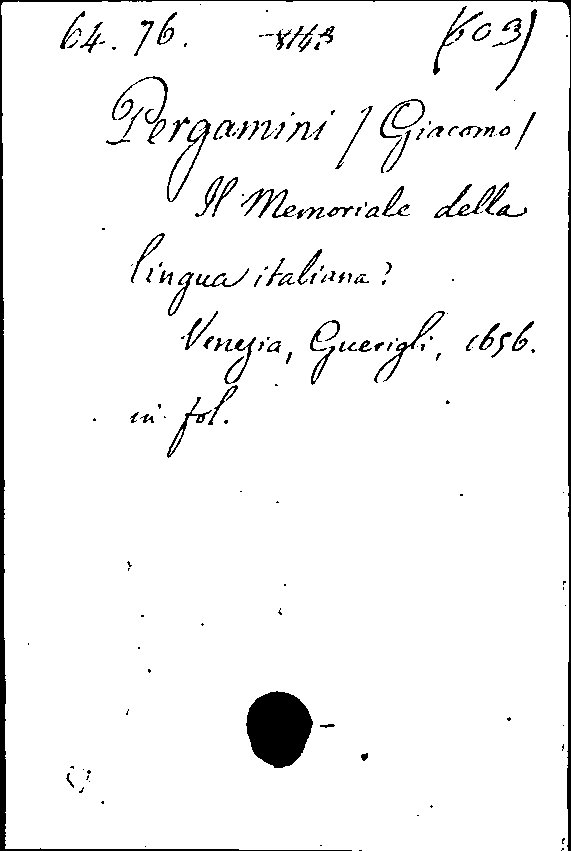 64. 76. (603)
Pergamini / Giacomo /
Il Memoriale della
lingua italiana?
Venezia, Guerigli, 1656.
in fol.